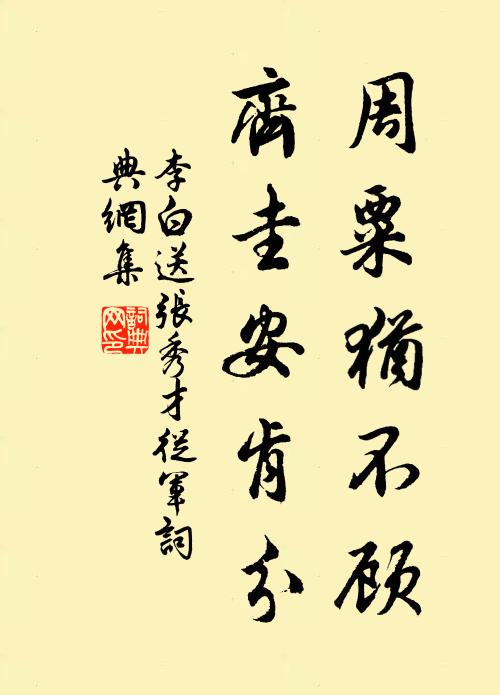 周粟猶不顾
齊圭安肯分
李白送張秀才從軍詞
典網集
詞典
网印